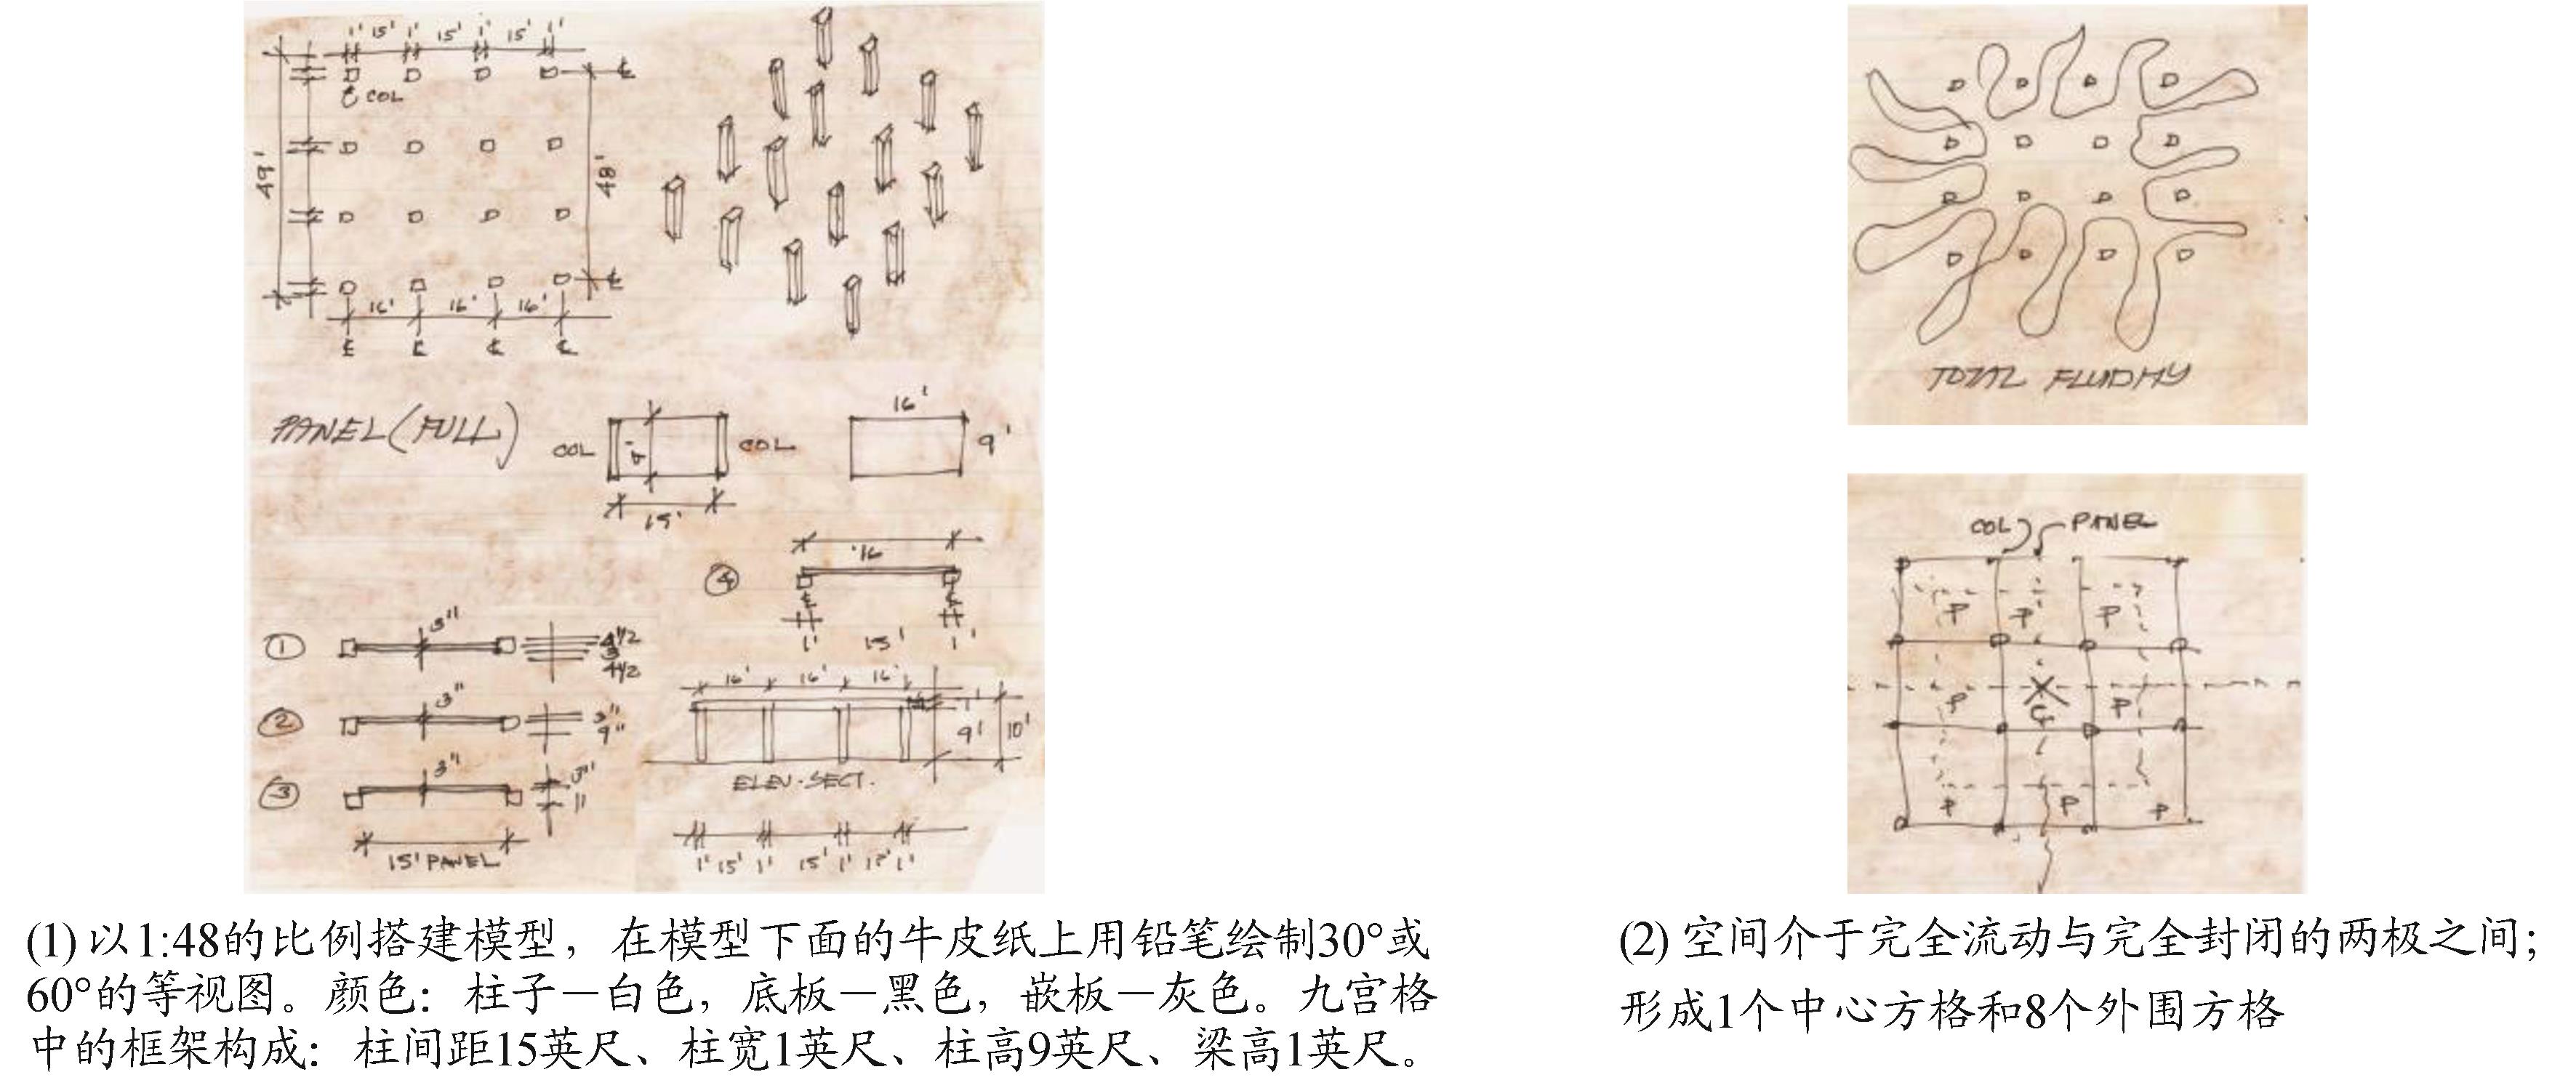 1' 15' 1' 15' 1' 15' 1'
COL
49'
48'
16' 16' 16'
PANEL (FULL)
COL
9'
COL
15'
16'
9'
④
16
1' 15' 1'
①
3"
4 1/2
3
4 1/2
②
3"
3"
9"
③
3"
3"
11
15' PANEL
16' 16' 16'
1'
9'
10'
ELEV. SECT.
1' 15' 1' 15' 1' 15' 1'
(1) 以1:48的比例搭建模型，在模型下面的牛皮纸上用铅笔绘制30°或
60°的等视图。颜色：柱子－白色，底板－黑色，嵌板－灰色。九宫格
中的框架构成：柱间距15英尺、柱宽1英尺、柱高9英尺、梁高1英尺。
TOTAL FLUIDITY
COL PANEL
P P P
P P
P P P
(2) 空间介于完全流动与完全封闭的两极之间；
形成1个中心方格和8个外围方格